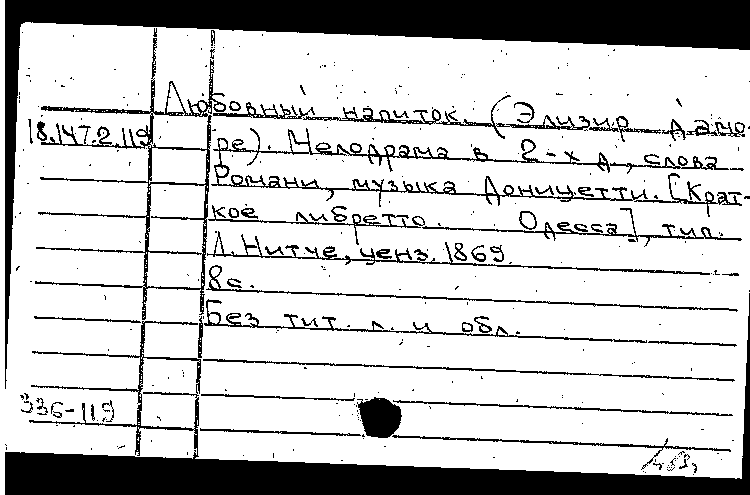 Любовный напиток. (Элизир д'амо-
18.147.2.119 ре). Мелодрама в 2-х д., слова
Романи, музыка Доницетти. [Крат-
кое либретто. Одесса], тип.
Л. Нитче, ценз. 1869.
8с.
Без тит. л. и обл.
336-119